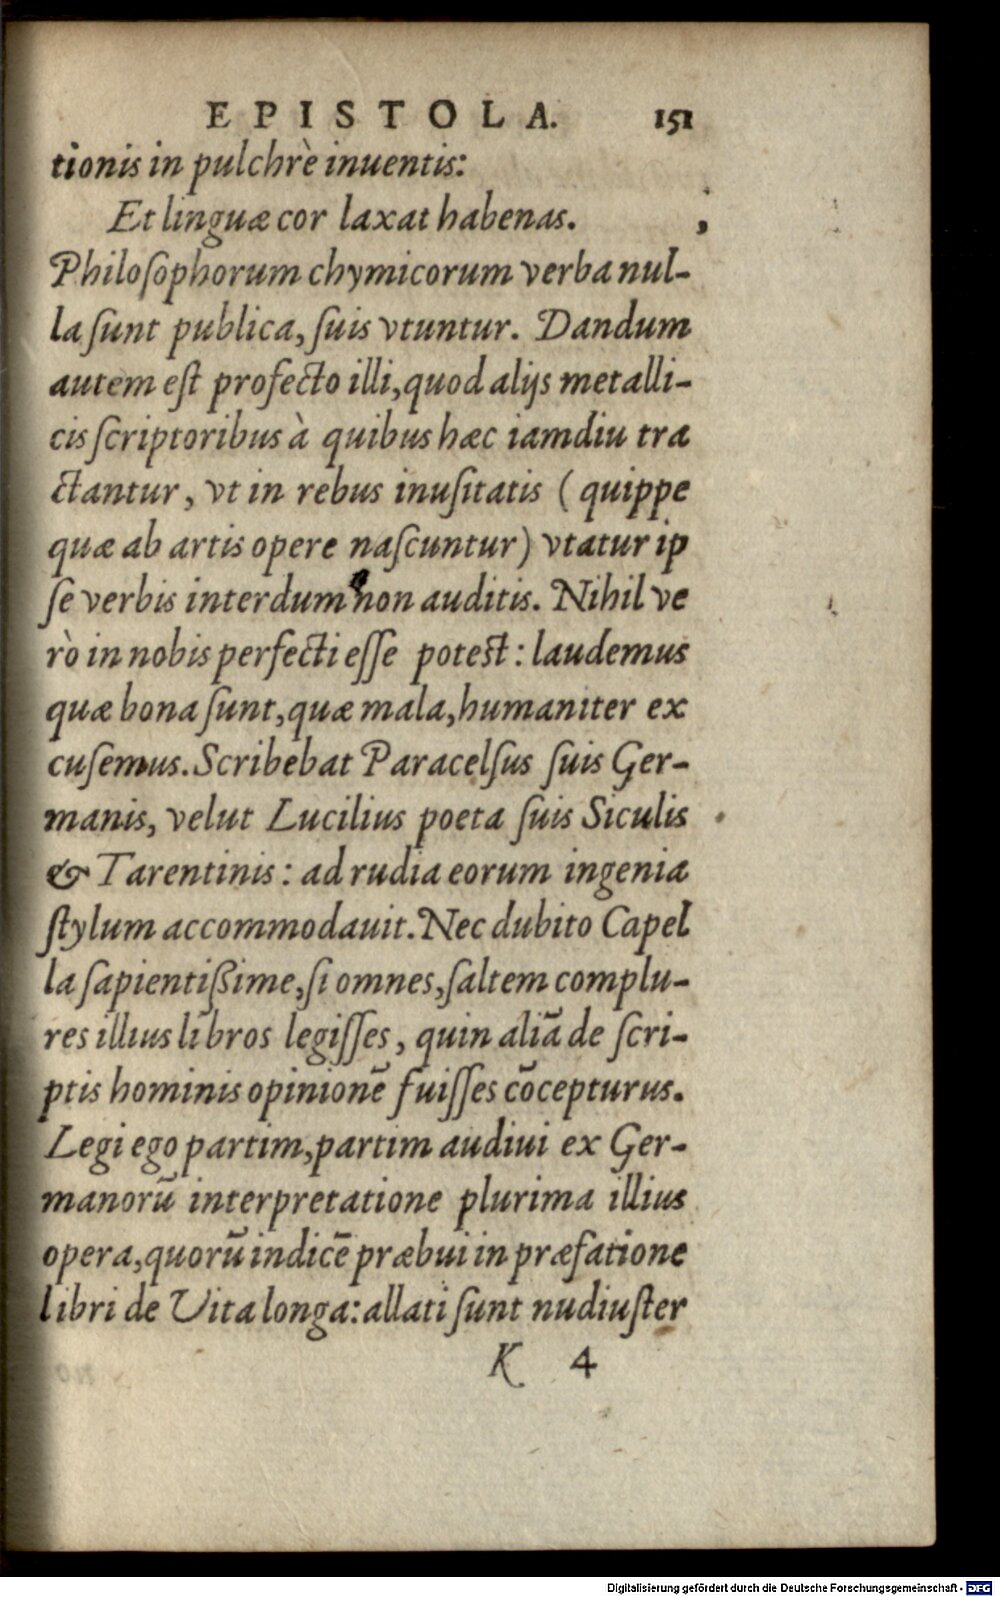 EPISTOLA. 151
tionis in pulchrè inuentis:
Et linguæ cor laxat habenas.
Philoſophorum chymicorum verba nul-
la ſunt publica, ſuis vtuntur. Dandum
autem eſt profecto illi, quod alijs metalli-
cis ſcriptoribus à quibus hæc iamdiu tra
ctantur, vt in rebus inuſitatis (quippe
quæ ab artis opere naſcuntur) vtatur ip
ſe verbis interdum non auditis. Nihil ve
rò in nobis perfecti eſſe poteſt: laudemus
quæ bona ſunt, quæ mala, humaniter ex
cuſemus. Scribebat Paracelſus ſuis Ger-
manis, velut Lucilius poeta ſuis Siculis
& Tarentinis: ad rudia eorum ingenia
ſtylum accommodauit. Nec dubito Capel
la ſapientißime, ſi omnes, ſaltem complu-
res illius libros legiſſes, quin aliā de ſcri-
ptis hominis opinionē fuiſſes cōcepturus.
Legi ego partim, partim audiui ex Ger-
manorū interpretatione plurima illius
opera, quorū indicē præbui in præfatione
libri de Vita longa: allati ſunt nudiuſter
K 4
Digitalisierung gefördert durch die Deutsche Forschungsgemeinschaft - DFG